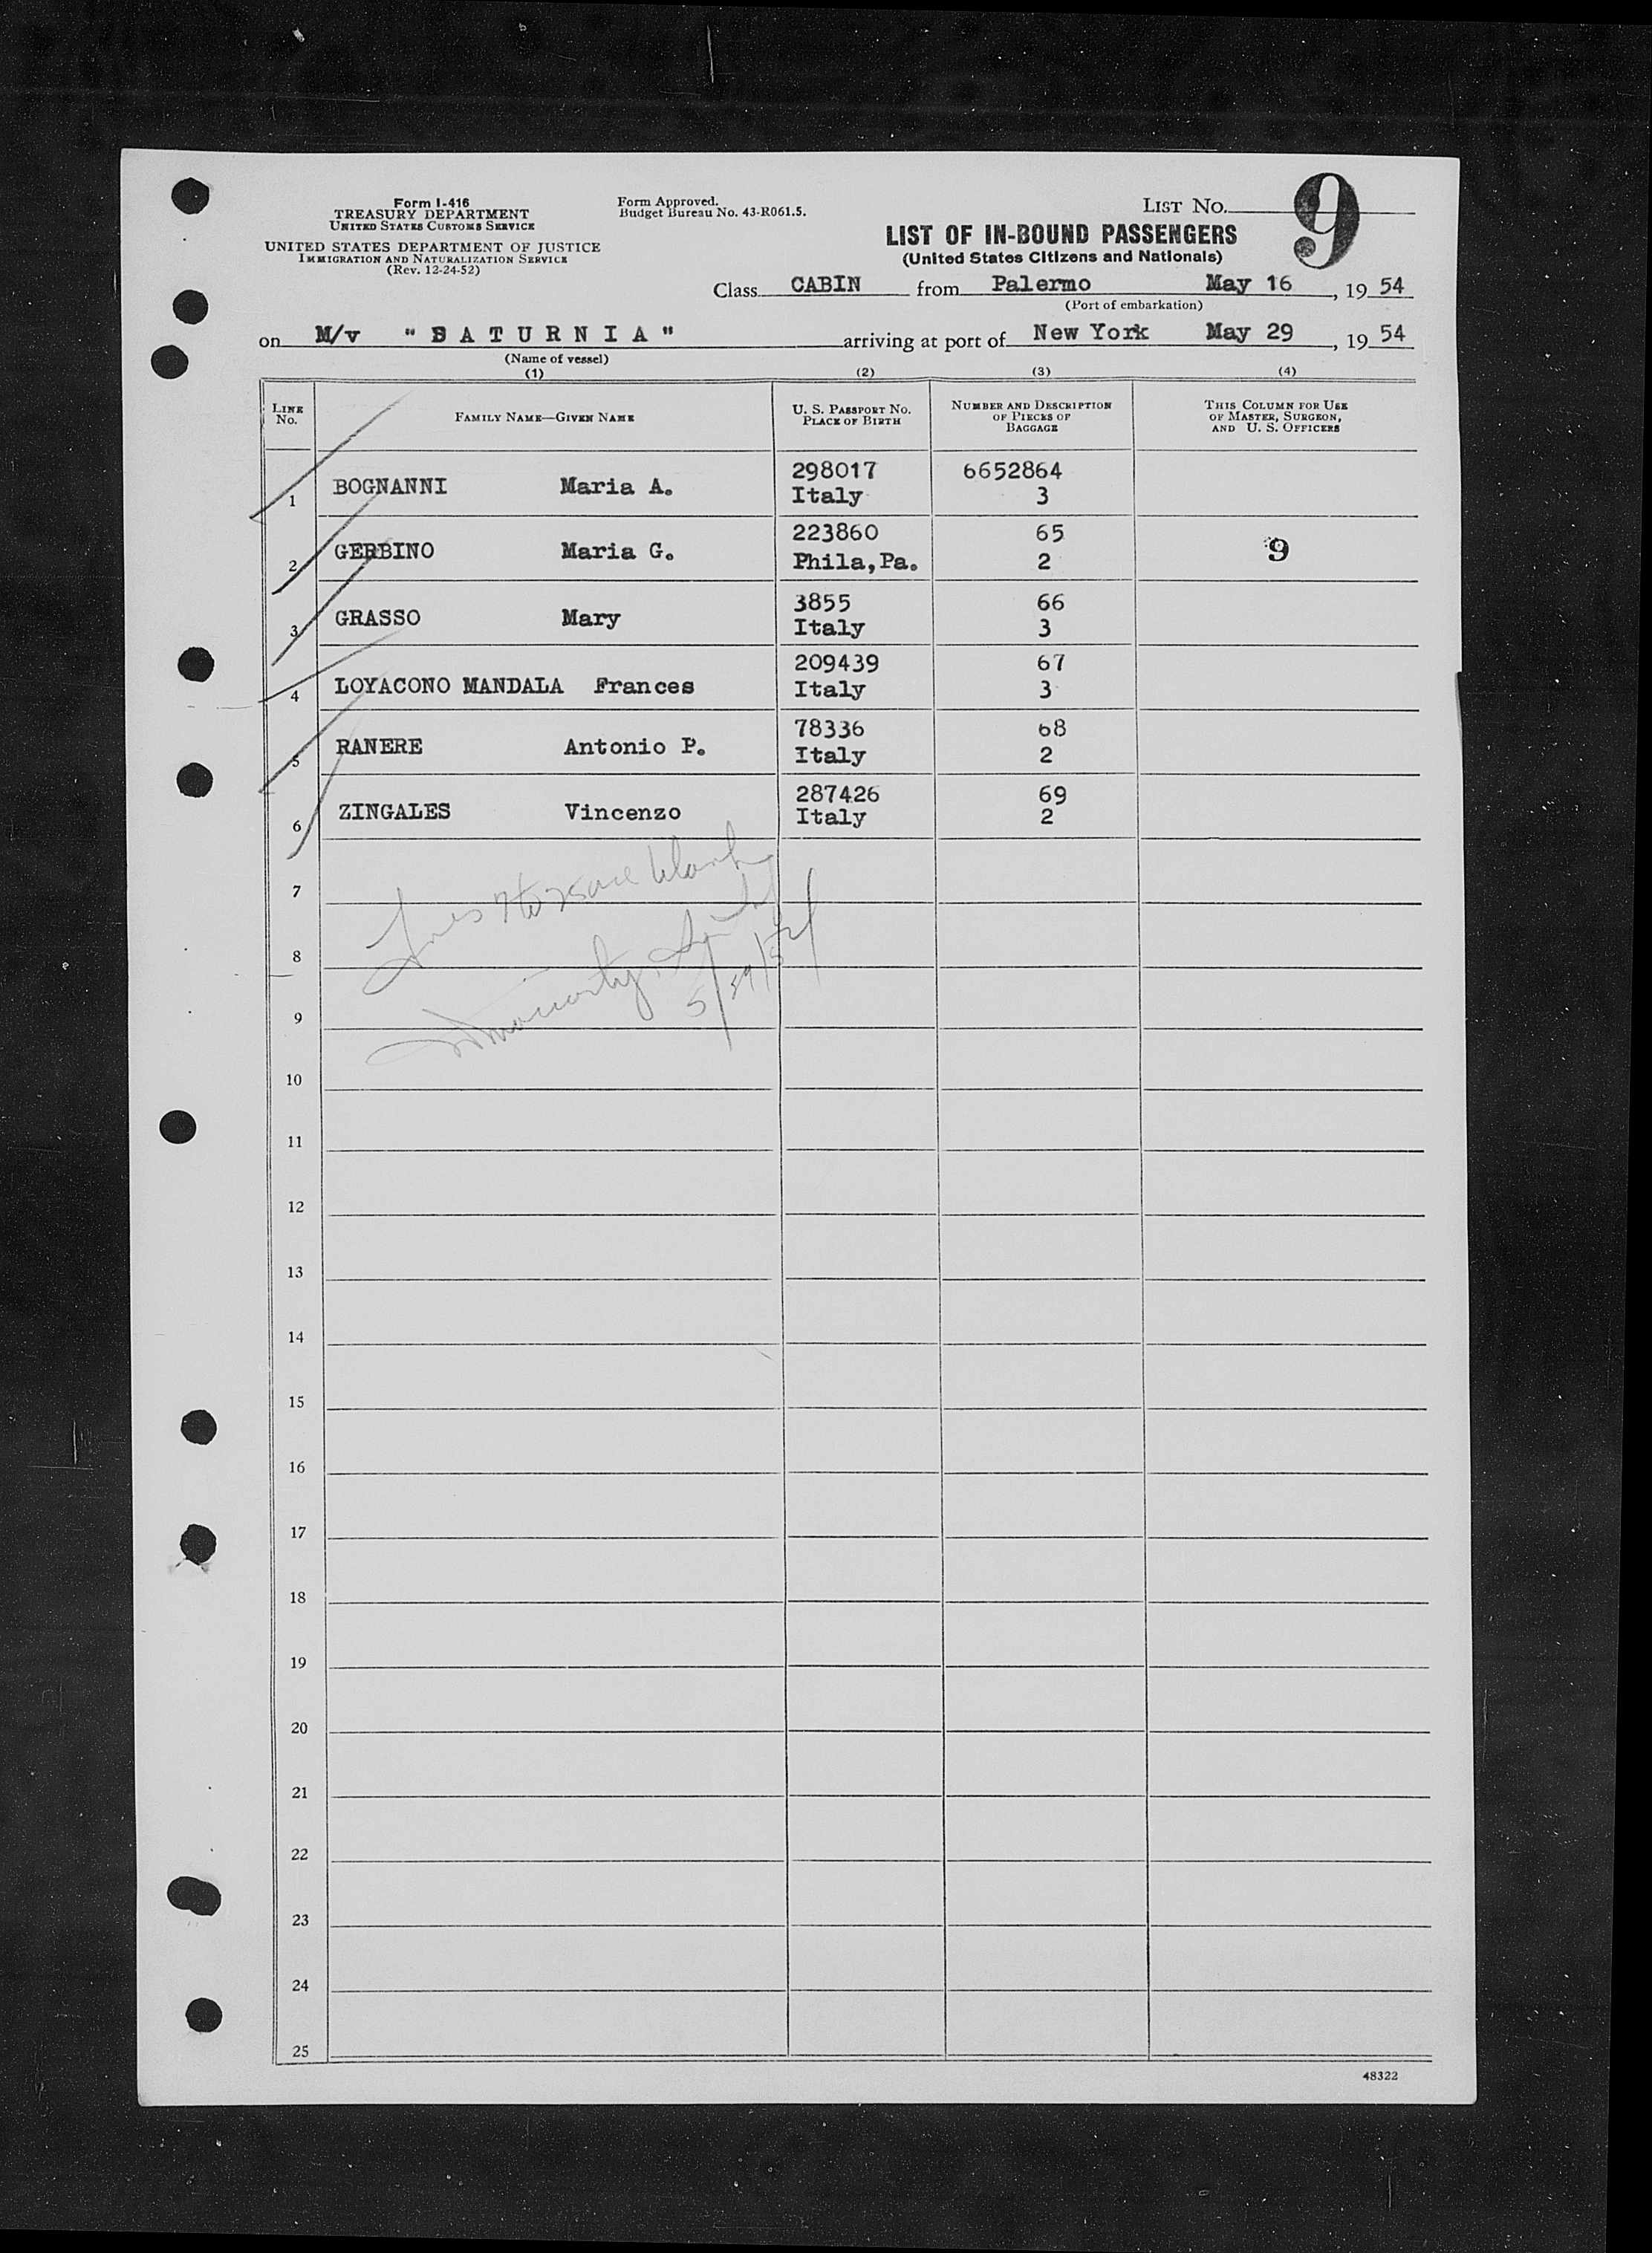 Form I-416
TREASURY DEPARTMENT
UNITED STATES CUSTOMS SERVICE
UNITED STATES DEPARTMENT OF JUSTICE
IMMIGRATION AND NATURALIZATION SERVICE
(Rev. 12-24-52)
Form Approved.
Budget Bureau No. 43-R061.5.
LIST No. 9
LIST OF IN-BOUND PASSENGERS
(United States Citizens and Nationals)
Class CABIN from Palermo May 16, 19 54
(Port of embarkation)
on M/v "SATURNIA" arriving at port of New York May 29, 19 54
(Name of vessel)
(1) (2) (3) (4)
LINE No. FAMILY NAME—GIVEN NAME U. S. PASSPORT No. PLACE OF BIRTH NUMBER AND DESCRIPTION OF PIECES OF BAGGAGE THIS COLUMN FOR USE OF MASTER, SURGEON, AND U. S. OFFICERS
1 BOGNANNI Maria A. 298017 Italy 6652864 3
2 GERBINO Maria G. 223860 Phila,Pa. 65 2 9
3 GRASSO Mary 3855 Italy 66 3
4 LOYACONO MANDALA Frances 209439 Italy 67 3
5 RANERE Antonio P. 78336 Italy 68 2
6 ZINGALES Vincenzo 287426 Italy 69 2
7
8
9
5/29/54
10
11
12
13
14
15
16
17
18
19
20
21
22
23
24
25
48322